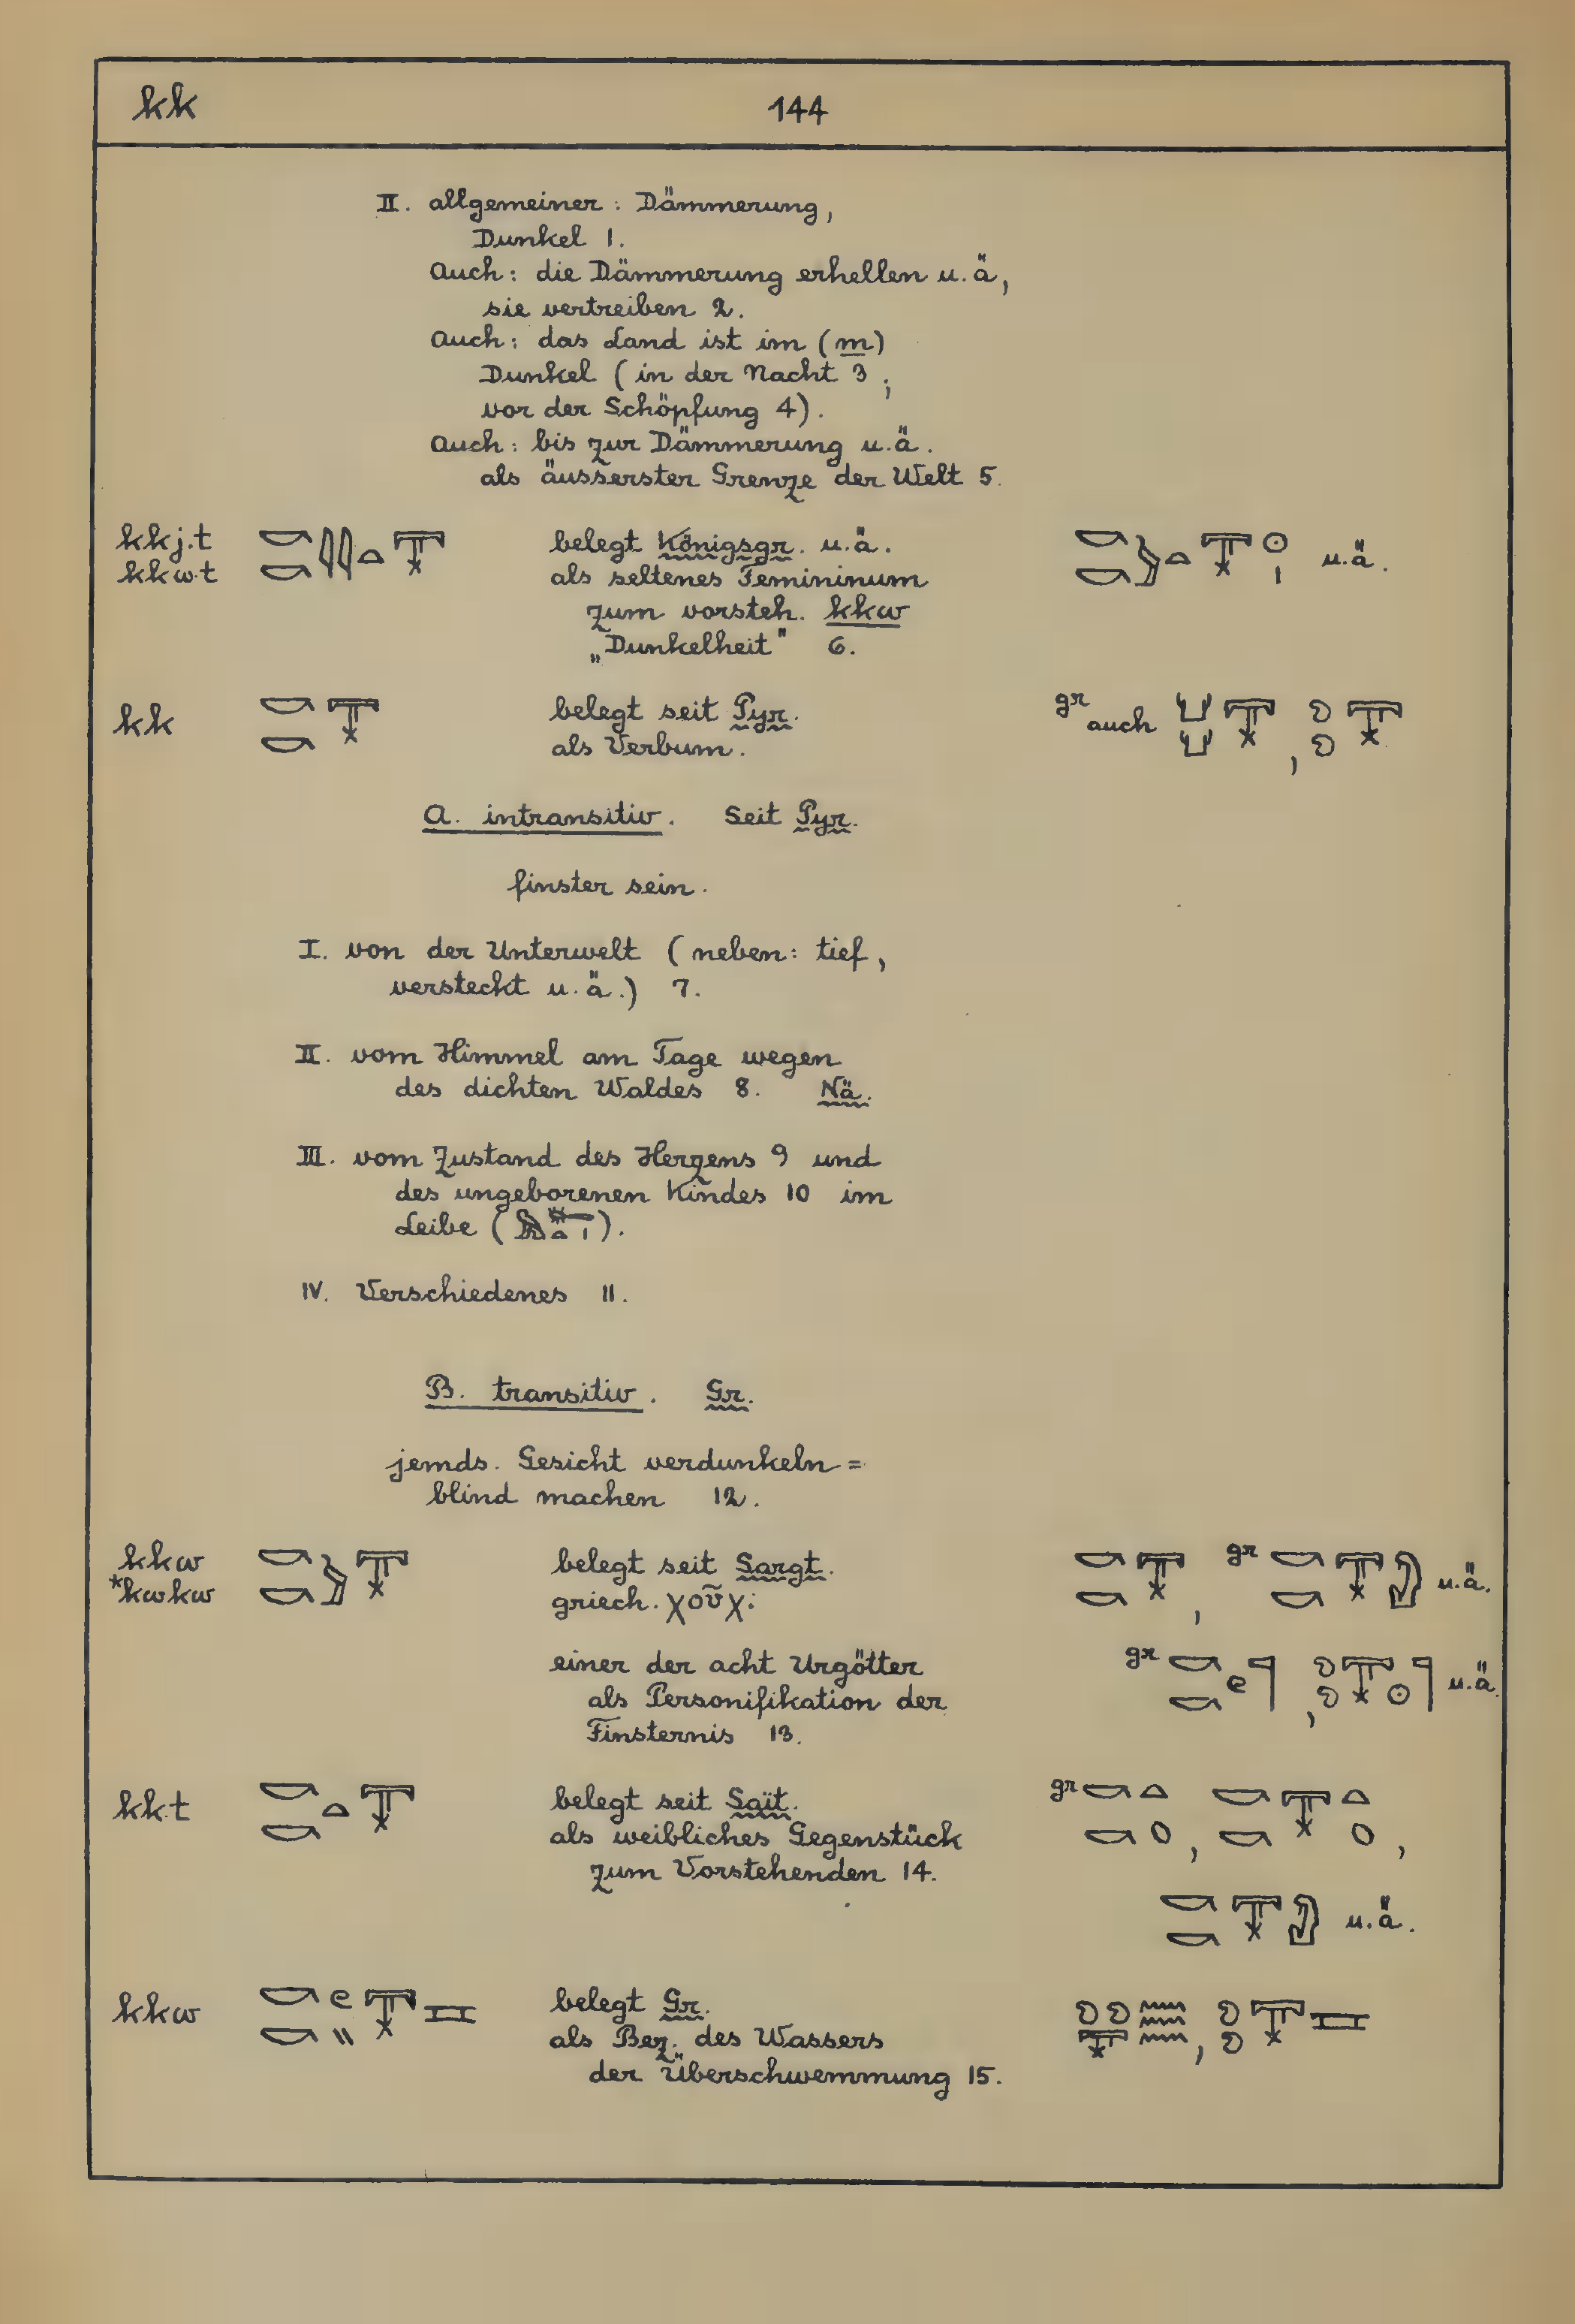 kk 144
II. allgemeiner: Dämmerung,
Dunkel 1.
Auch: die Dämmerung erhellen u.ä,
sie vertreiben 2.
Auch: das Land ist im (m)
Dunkel (in der Nacht 3;
vor der Schöpfung 4).
Auch: bis zur Dämmerung u.ä.
als äusserster Grenze der Welt 5.
kkj.t belegt Königsgr. u.ä. u.ä.
kkw.t als seltenes Femininum
zum vorsteh. kkw
„Dunkelheit" 6.
kk belegt seit Pyr. gr auch
als Verbum.
A. intransitiv. Seit Pyr.
finster sein.
I. von der Unterwelt (neben: tief,
versteckt u.ä.) 7.
II. vom Himmel am Tage wegen
des dichten Waldes 8. Nä.
III. vom Zustand des Herzens 9 und
des ungeborenen Kindes 10 im
Leibe ( ).
IV. Verschiedenes 11.
B. transitiv. Gr.
jemds. Gesicht verdunkeln =
blind machen 12.
kkw belegt seit Sargt. , gr u.ä.
*kwkw griech. χοῦχ:
einer der acht Urgötter gr , u.ä.
als Personifikation der
Finsternis 13.
kk.t belegt seit Saït. gr , ,
als weibliches Gegenstück
zum Vorstehenden 14.
u.ä.
kkw belegt Gr. ,
als Bez. des Wassers
der Überschwemmung 15.